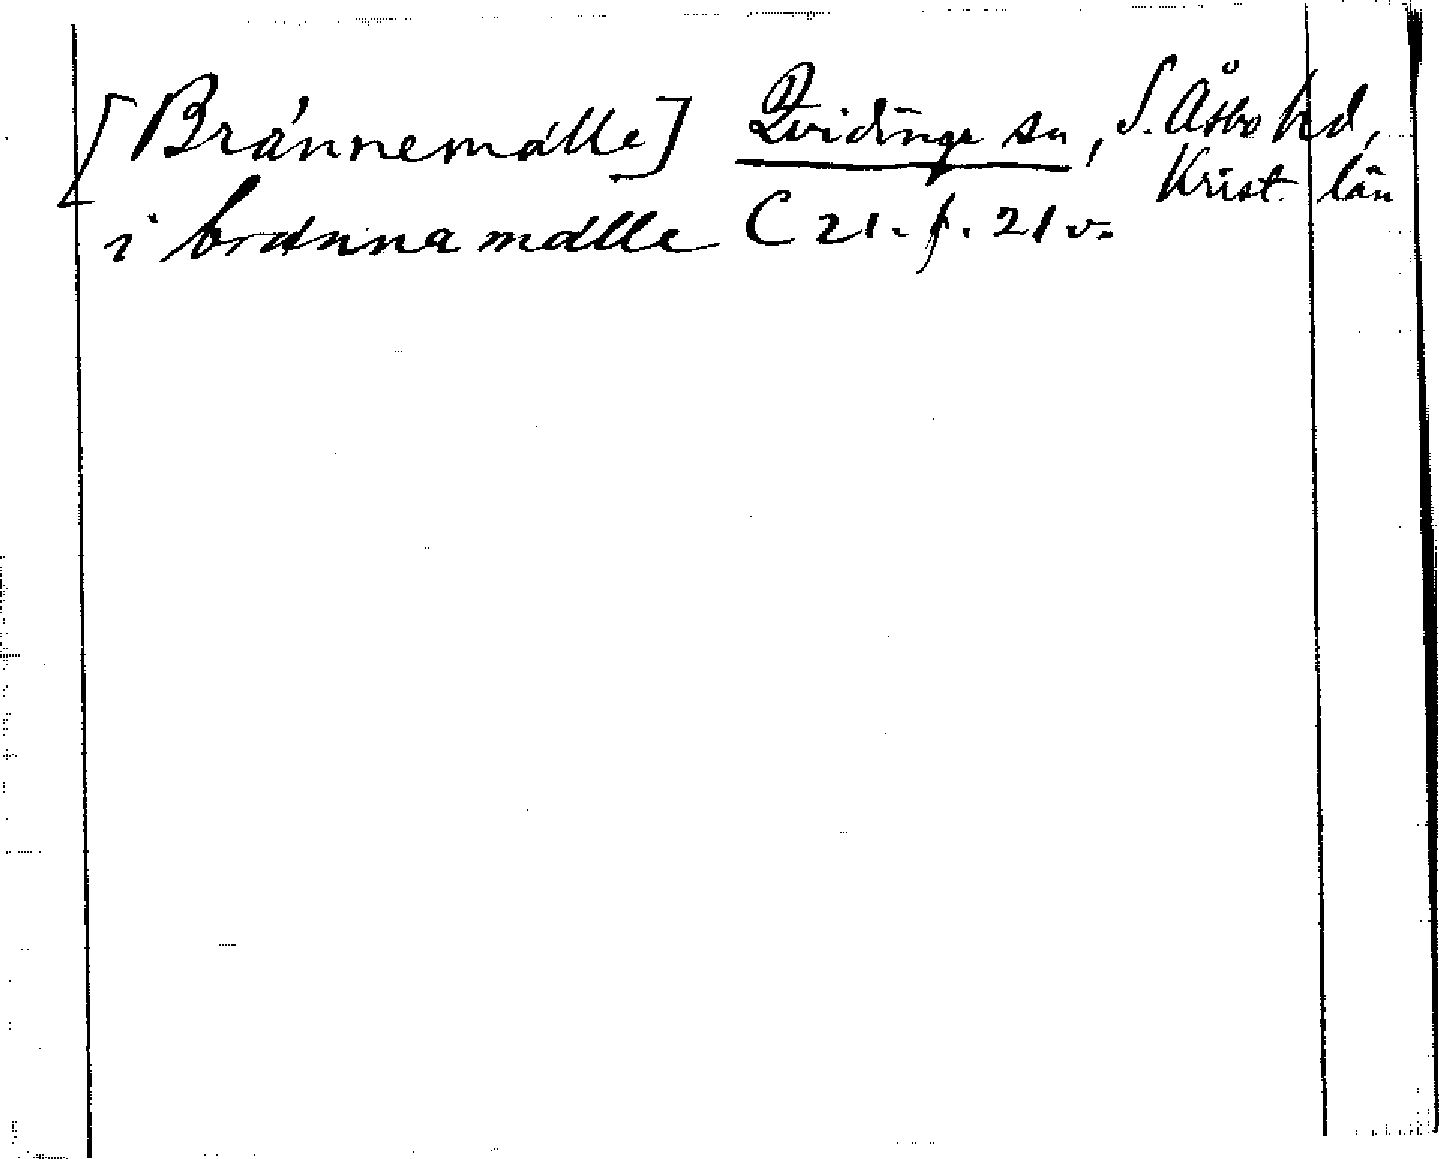 [Brånnemålle] Qvidinge sn, S. Åsbo hd,
Krist. län
i brånnamålle C 21. f. 21 v.